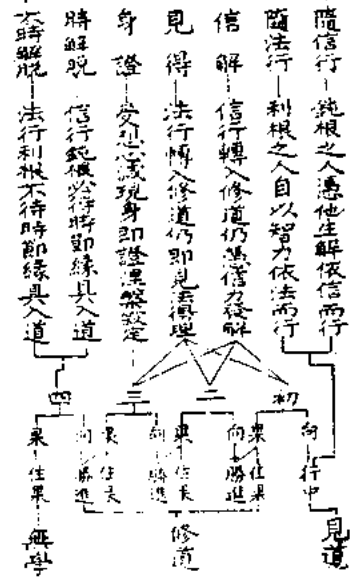 隨信行─鈍根之人憑他生解依信而行
隨法行─利根之人自以智力依法而行
信解─信行轉入修道仍憑信力發解
見得─法行轉入修道仍即見法得理
身證─受想心滅現身即證涅槃寂定
時解脱─信行鈍根必待時節緣具入道
不時解脱─法行利根不待時節緣具入道
初
二
三
四
向
行中
果
住果
向
勝進
果
住果
向
勝進
果
住果
向
勝進
果
住果
見道
修道
無學